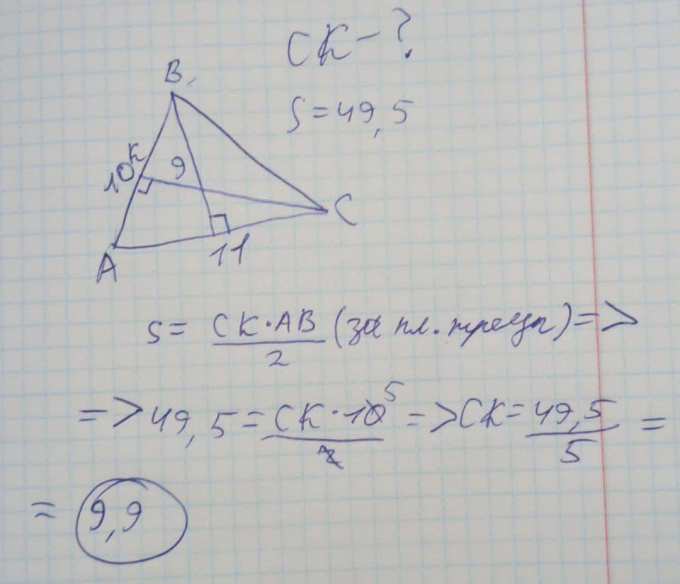 CK - ?
S = 49,5
B
K
10
9
C
A
11
S = CK·AB / 2 (за пл. трец) =>
=> 49,5 = CK·10 5 / 2 => CK = 49,5 / 5 =
= 9,9